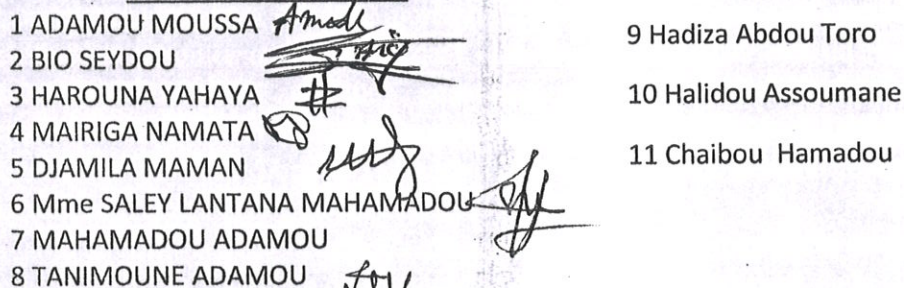 1 ADAMOU MOUSSA
2 BIO SEYDOU
3 HAROUNA YAHAYA
4 MAIRIGA NAMATA
5 DJAMILA MAMAN
6 Mme SALEY LANTANA MAHAMADOU
7 MAHAMADOU ADAMOU
8 TANIMOUNE ADAMOU
9 Hadiza Abdou Toro
10 Halidou Assoumane
11 Chaibou Hamadou